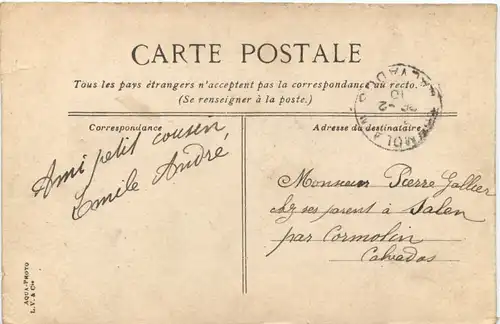 CARTE POSTALE
Tous les pays étrangers n'acceptent pas la correspondance au recto.
(Se renseigner à la poste.)
Correspondance
Ami petit cousin,
Emile André
Adresse du destinataire
Monsieur Pierre Gallier
chez ses parent à Salen
par Cormolin
Calvados
CALVADOS
AQUA-PHOTO
L.V. & Cie